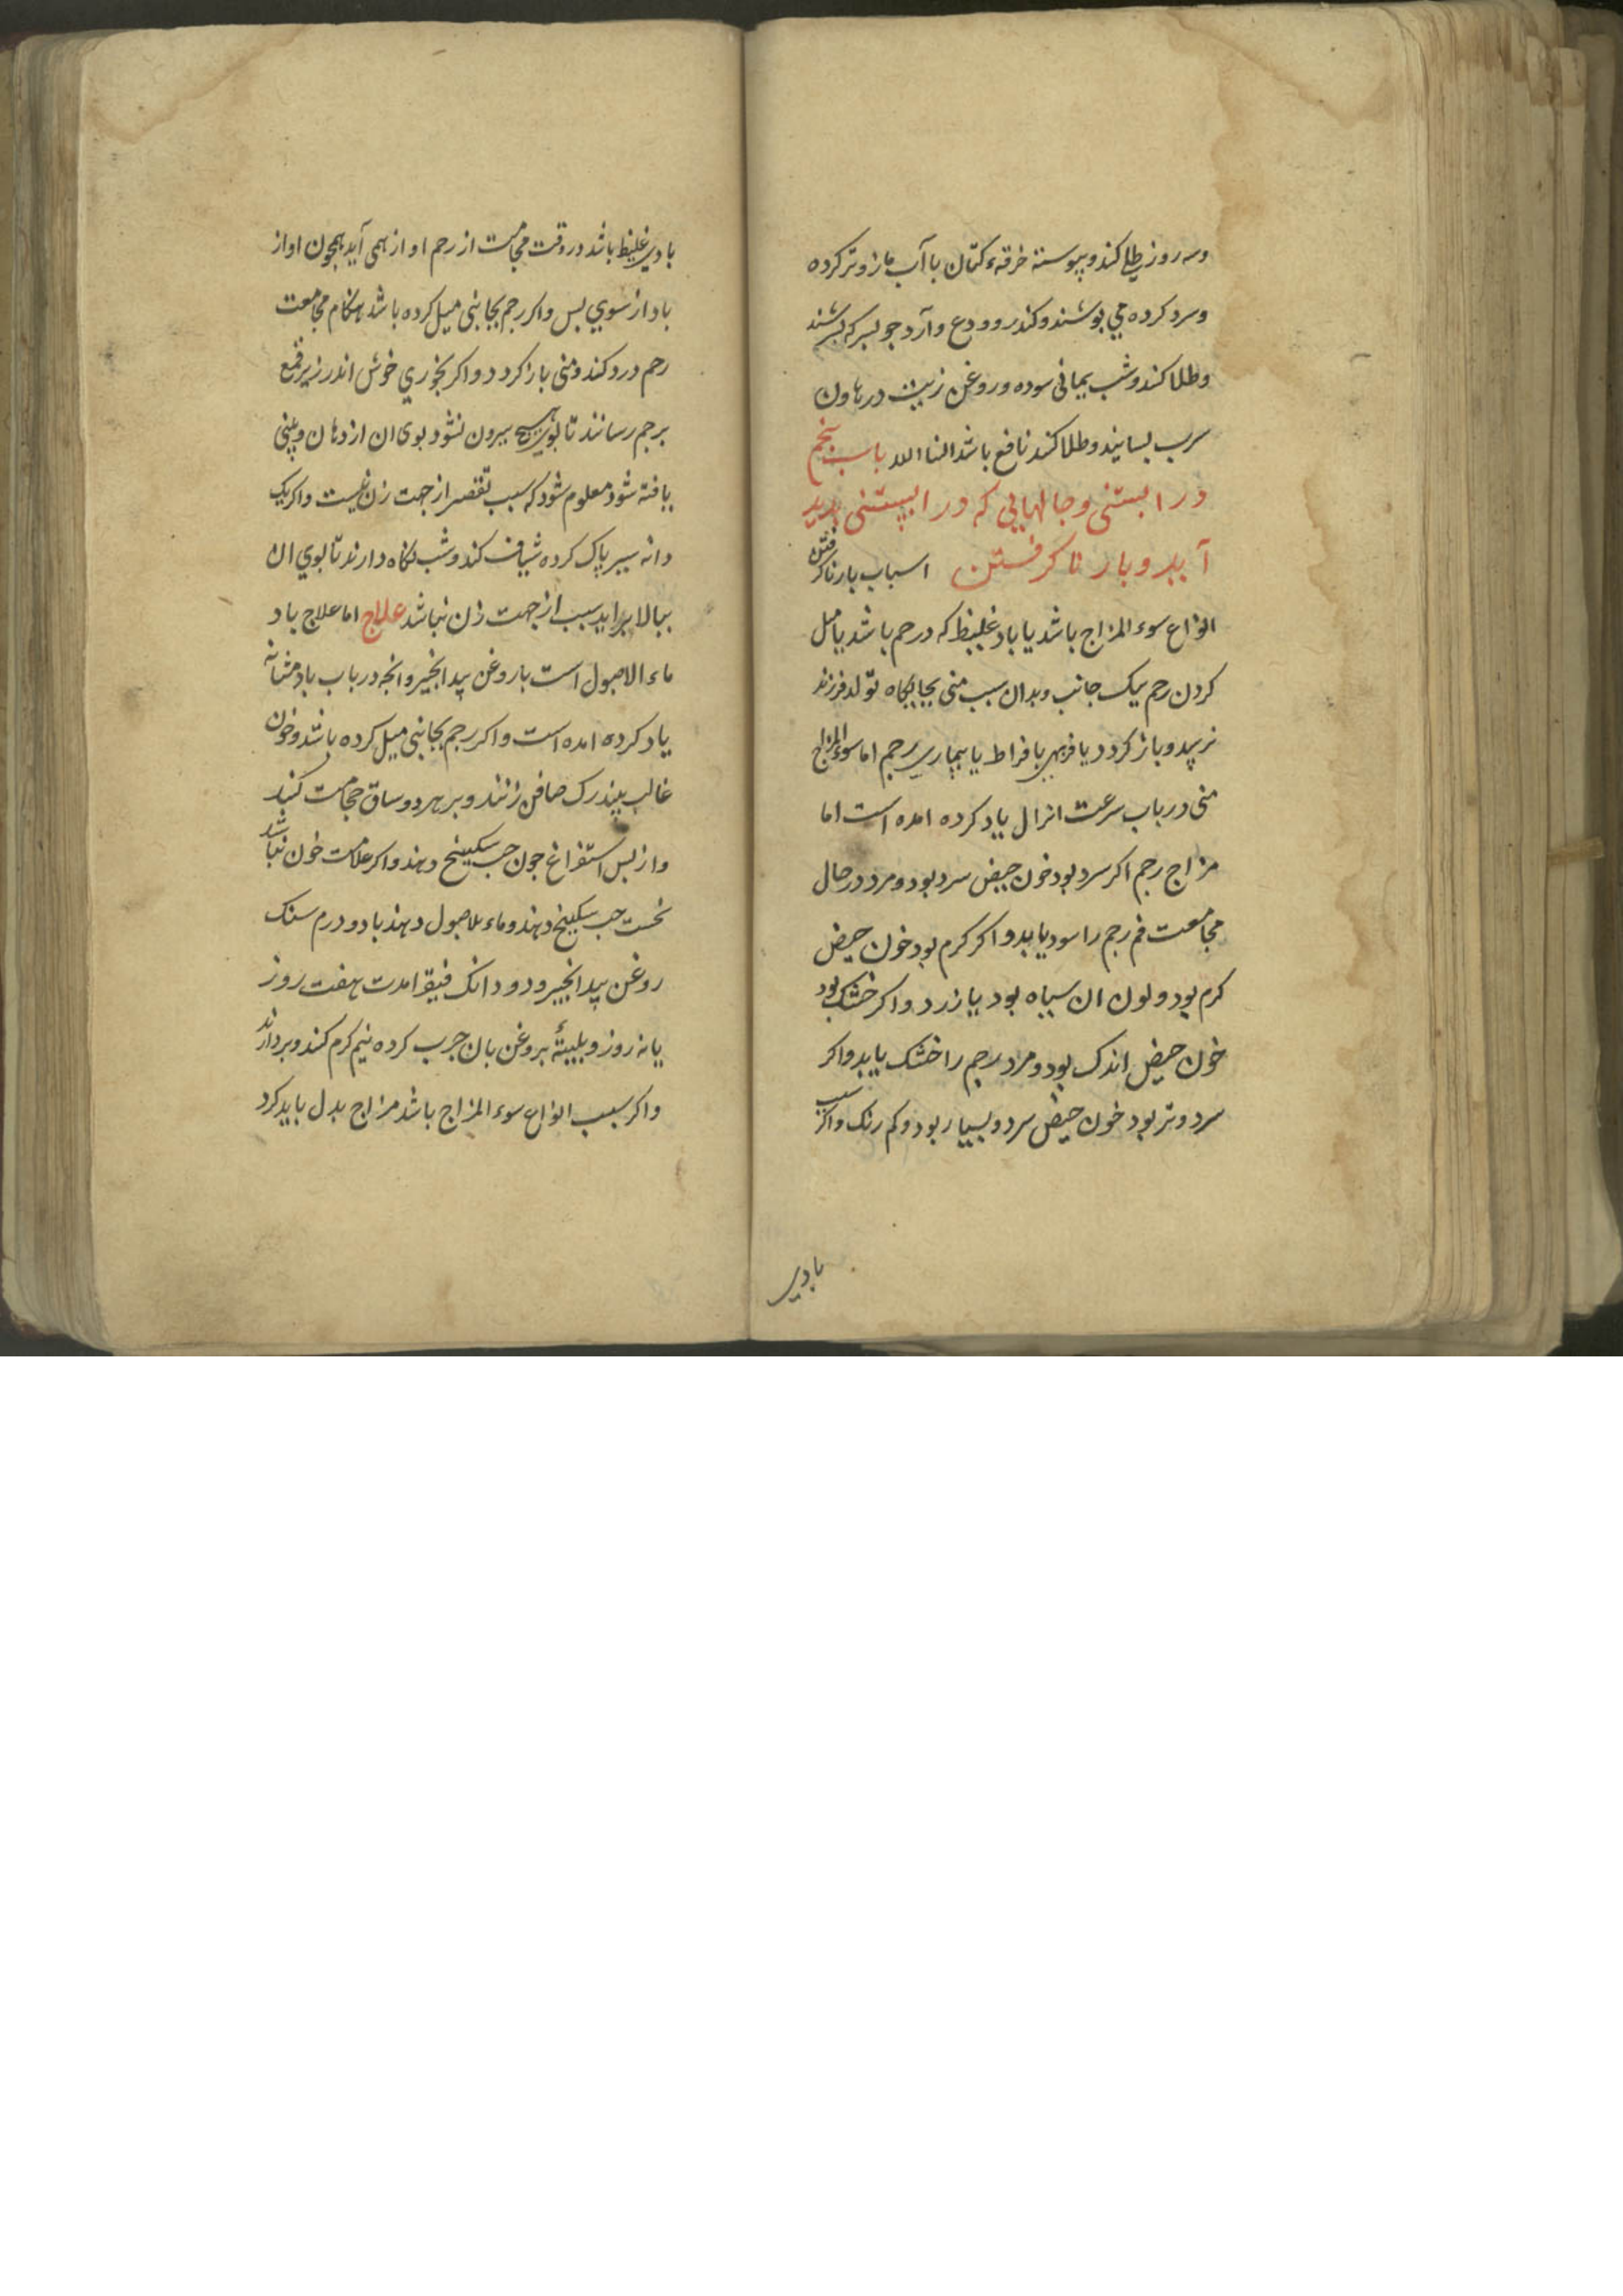 وسه روز طلا کند و پیوسته خرقهء کتان با آب مازو تر کرده
وسرد کرده می پوشند و کندر و ودع و آرد جو بسرکه بسرشند
و طلا کند و شب یمانی سوده و روغن زیت در هاون
سرب بسایند و طلا کند نافع باشد انشا الله باب پنجم
در ابستنی و حالهایی که در ابستنی پدید
آید و بار نا کرفتن اسباب بار نا کرفتن
انواع سوء المزاج باشد یا باد غلیظ که در رحم باشد یا میل
کردن رحم بیک جانب و بدان سبب منی بجایکاه تولد فرزند
نرسد و باز کردد یا فربهی بافراط یا بیماری رحم اما سوء المزاج
منی در باب سرعت انزال یاد کرده امده است اما
مزاج رحم اکر سرد بود خون حیض سرد بود و مرد در حال
مجامعت فم رحم را سرد یابد و اکر کرم بود خون حیض
کرم بود و لون ان سیاه بود یا زرد و اکر خشک بود
خون حیض اندک بود و مرد رحم را خشک یابد و اکر
سرد و تر بود خون حیض سرد و بسیار بود و کم رنک و اکر سبب
بادی
بادی غلیظ باشد در وقت مجامعت از رحم اواز همی آید همچون اواز
باد از سوی پس و اکر رحم بجانبی میل کرده باشد هنکام مجامعت
رحم درد کند و منی باز کردد و اکر بخوری خوش اندر زیر قمع
برحم رسانند تا بوی هیچ بیرون نشود بوی ان از دهان و بینی
یافته شود معلوم شود که سبب تقصیر از جهت زن نیست و اکر یک
دانه سیر پاک کرده شیاف کند و شب نکاه دارند تا بوی ان
ببالا براید سبب از جهت زن نباشد علاج اما علاج باد
ماء الاصول است با روغن بید انجیر و انجه در باب باد مثانه
یاد کرده امده است و اکر رحم بجانبی میل کرده باشد و خون
غالب بیند رک صافن زنند و بر هر دو ساق حجامت کنند
و از پس استفراغ جون حب سکبینج دهند و اکر علامت خون نباشد
نخست حب سکبینج دهند و ماء الاصول دهند با دو درم سنک
روغن بید انجیر و دو دانک فیقرا مدت هفت روز
یا نه روز و پلیتهٔ بروغن بان جرب کرده نیم کرم کند و بردارند
و اکر سبب انواع سوء المزاج باشد مزاج بدل باید کرد